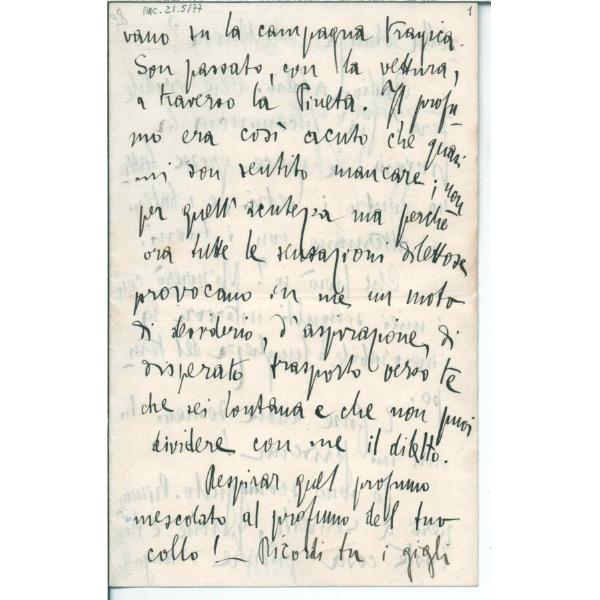 ARC. 21.5/77
1
vano su la campagna tragica.
Son passato, con la vettura,
a traverso la Pineta. Il profu-
mo era così acuto che quasi
mi son sentito mancare; non
per quell'acutezza ma perché
ora tutte le sensazioni dilettose
provocano in me un moto
di desiderio, d'aspirazione, di
disperato trasporto verso te
che sei lontana e che non puoi
dividere con me il diletto.
Respirar quel profumo
mescolato al profumo del tuo
collo! — Ricordi tu i gigli